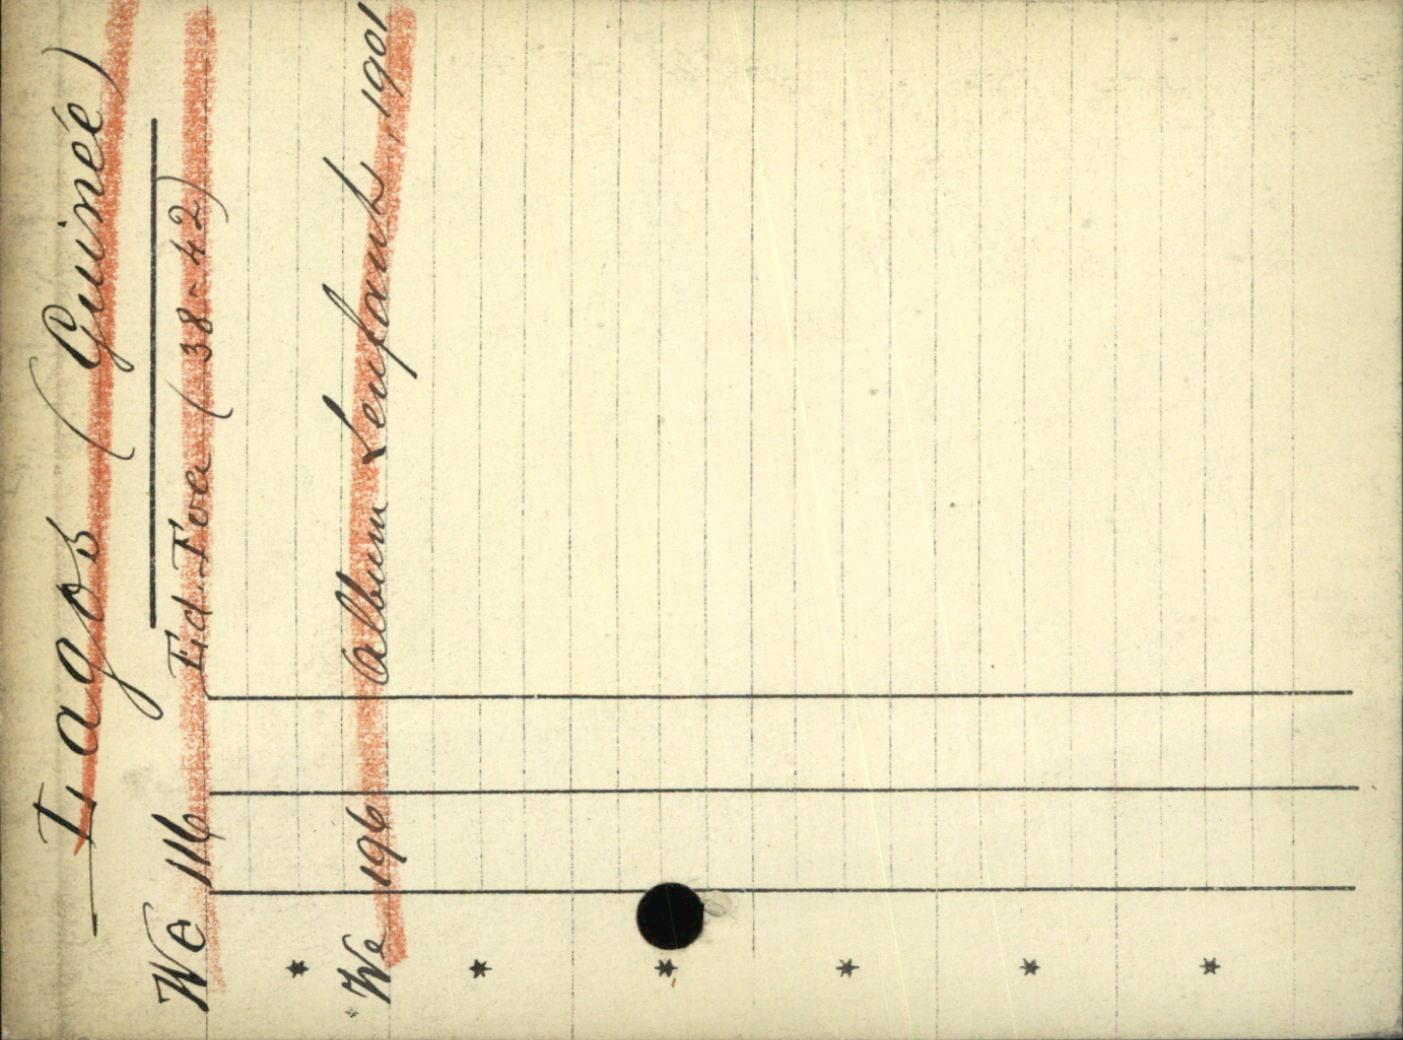 Lagos (Guinée)
We 116 Ed. Foa (38-42)
*
We 196 Album Lenfant, 1901
*
*
*
*
*